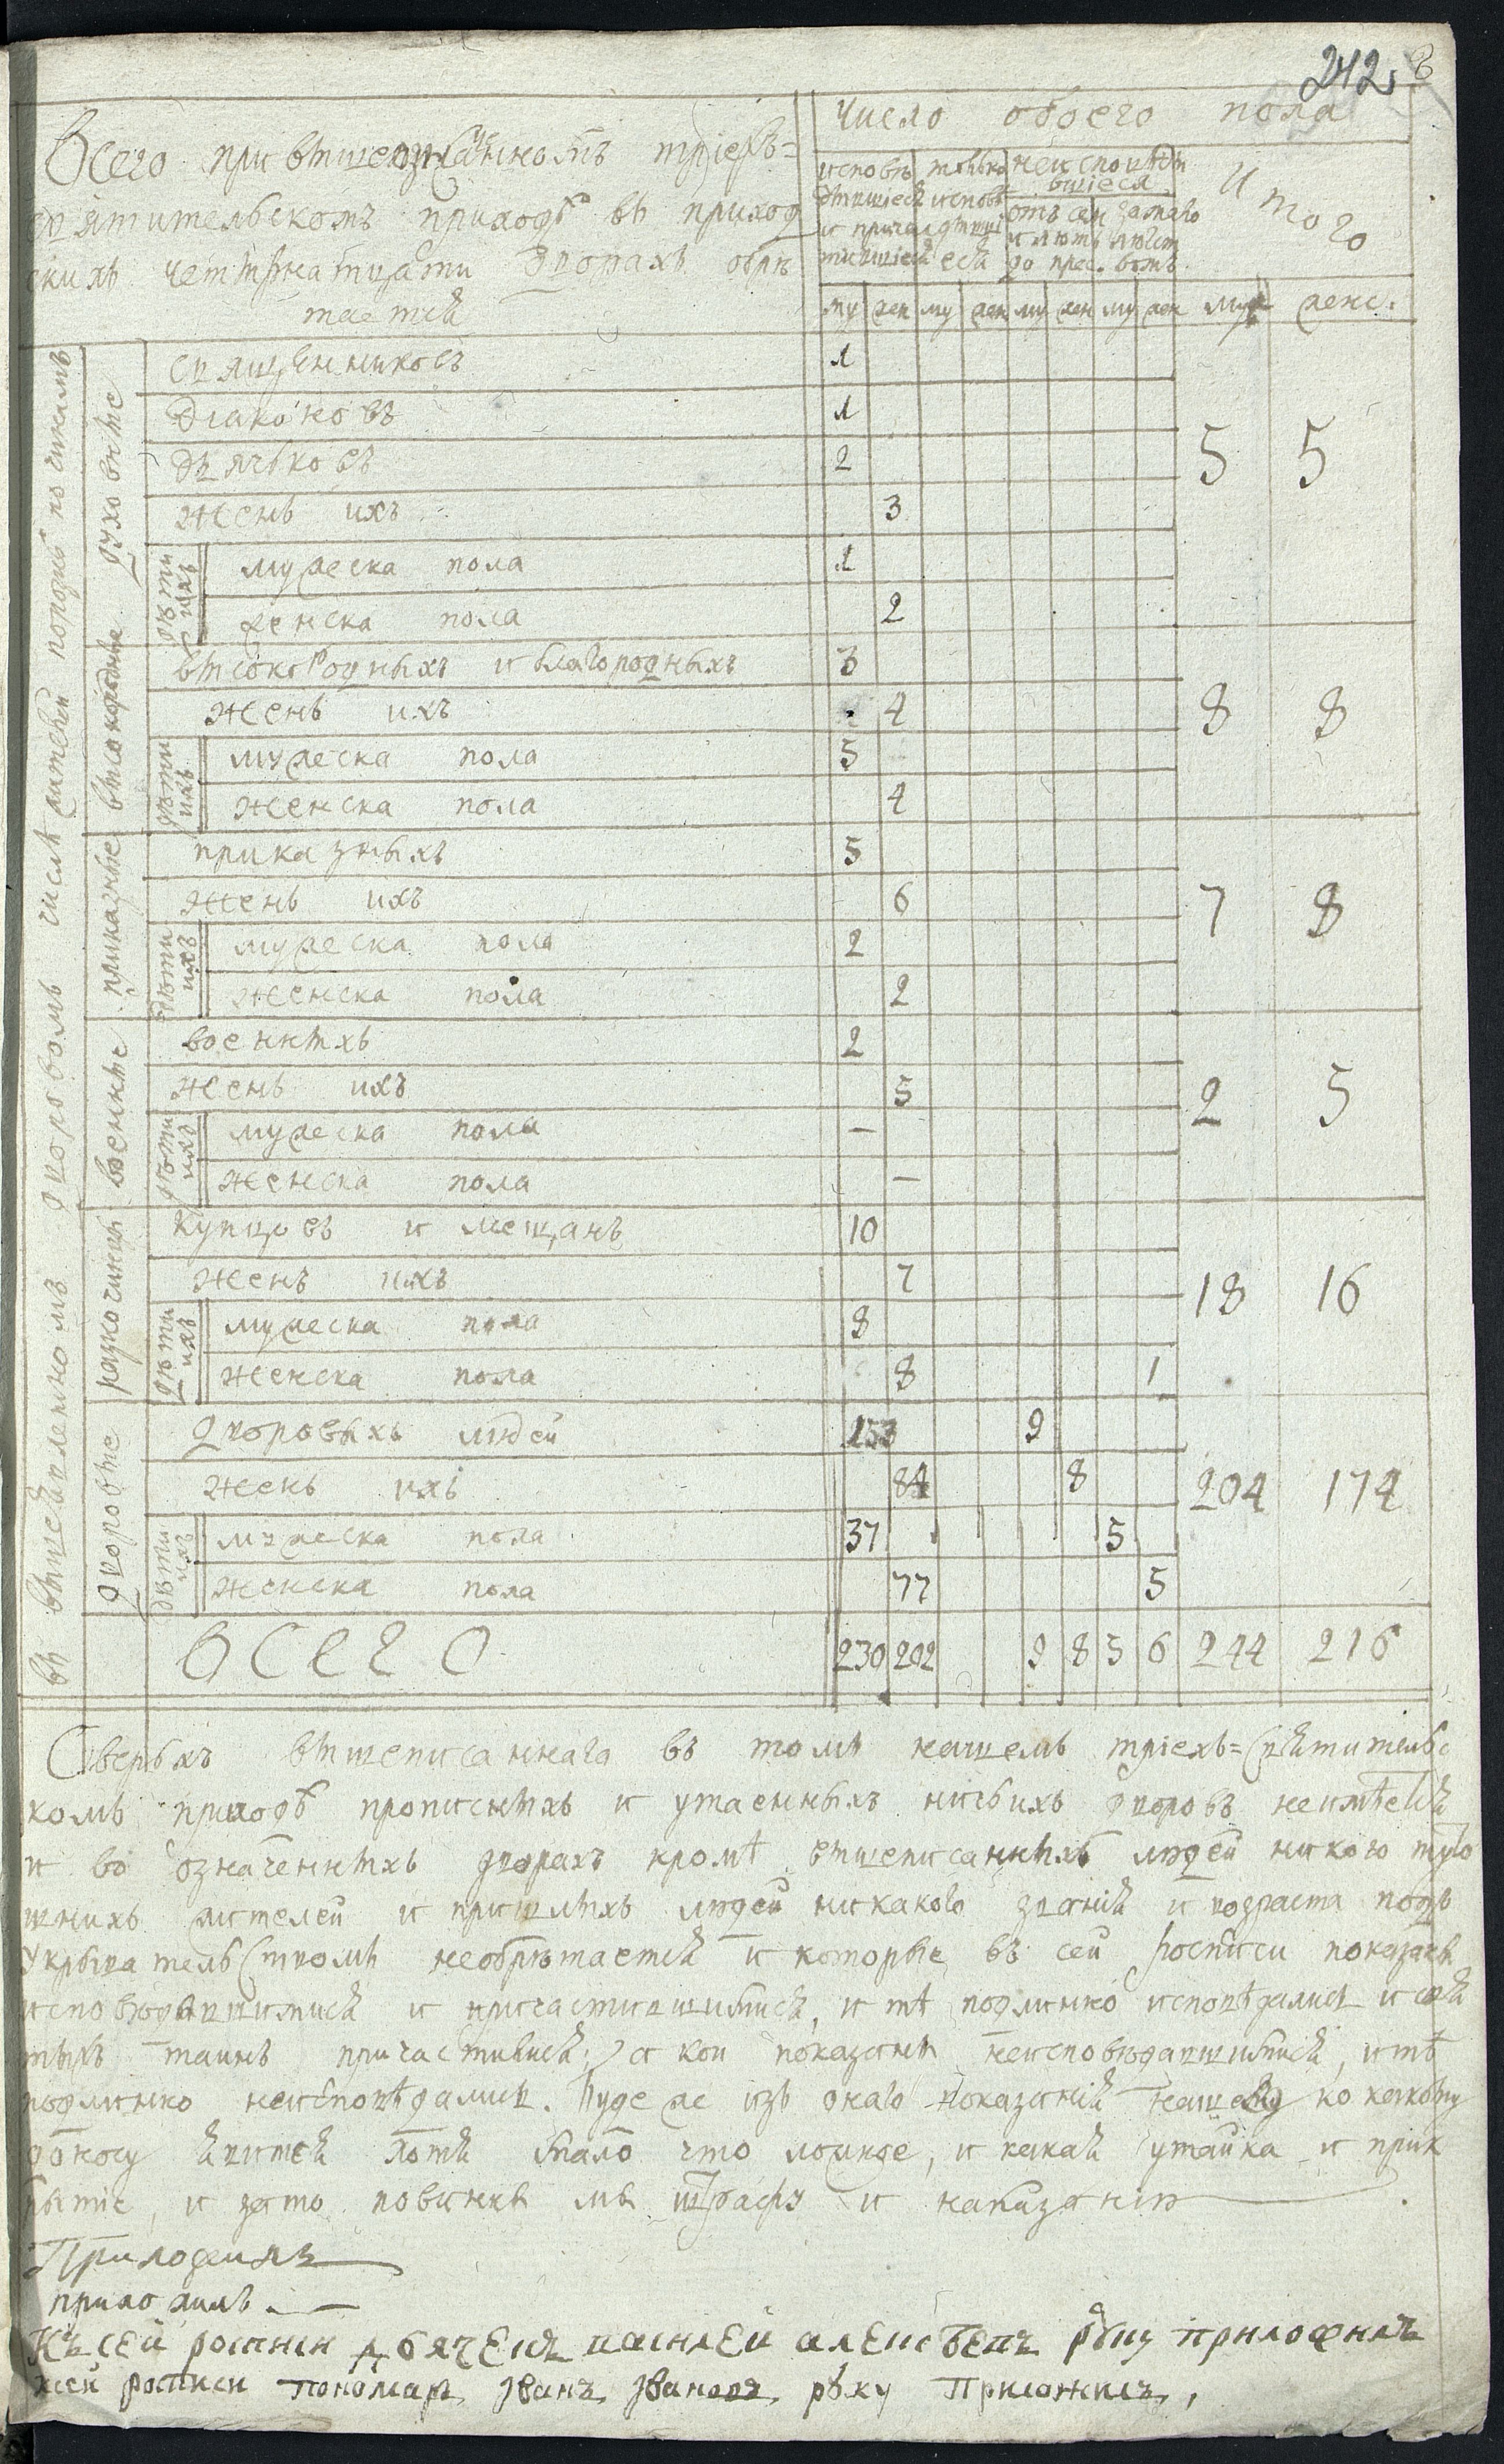 242
Всего при вышеозначенномъ трїехъ=
святительскомъ приходѣ въ приход
скихъ четырнатцати дворахъ обрѣ
тается
Число обоего пола
исповѣдавшїеся и причастившїеся
только исповѣдавшїеся
неисповѣдавшїеся
отъ семи лѣтъ
Итого
му жен му жен му жен му жен муж женс.
въ вышеявленномъ дворовомъ числѣ жителей порознь по чинамъ
духовные
священниковъ 1
Дїаконовъ 1
дьячковъ 2
женъ ихъ 3
5 5
дѣти ихъ
мужеска пола 1
женска пола 2
высокородные
высокородныхъ и благородныхъ 3
женъ ихъ 4
8 8
дѣти ихъ
мужеска пола 5
женска пола 4
приказные
приказныхъ 5
женъ ихъ 6
7 8
дѣти ихъ
мужеска пола 2
женска пола 2
военные
военныхъ 2
женъ ихъ 5
2 5
дѣти ихъ
мужеска пола —
женска пола —
разночинцы
купцовъ и мещанъ 10
женъ ихъ 7
18 16
дѣти ихъ
мужеска пола 8
женска пола 8 1
дворовые
дворовыхъ людей 153 9
женъ ихъ 84 8
204 174
дѣти ихъ
мужеска пола 37 5
женска пола 77 5
всего 230 202 9 8 5 6 244 216
Сверьхъ вышеписаннаго въ томъ нашемъ трїехъ=святительс
комъ приходѣ прописныхъ и утаенныхъ ничьихъ дворовъ неимѣется
и во означенныхъ дворахъ кромѣ вышеписанныхъ людей никого туто
шнихъ жителей и пришлыхъ людей никакого званїя и возраста подъ
укрывательствомъ необрѣтается и которые въ сей росписи показаны
исповѣдавшимися и причастившимися, и тѣ подлинно исповѣдались и свя
тыхъ таинъ причастились; а кои показаны неисповѣдавшимися, и тѣ
подлинно неисповѣдались. Буде же изъ онаго показанїя нашего по какому
доносу явится хотя мало что ложное, и какая утайка и прик
рытїе, и зато повинны мы штрафу и наказанїю.
Приложилъ
приложилъ.
Къ сей росписи дьячекъ василей алексѣевъ руку приложилъ
ксей росписи пономарь Iванъ Iвановъ руку Приложилъ,